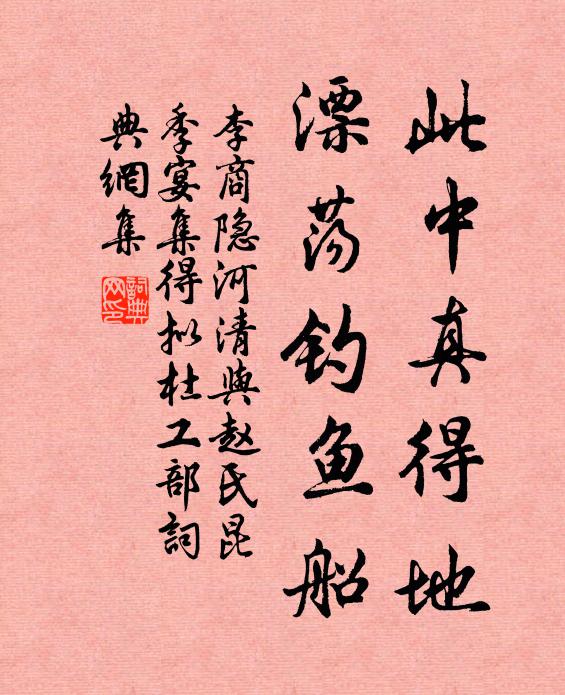 此中真得地
漂荡钓鱼船
李商隐河清與赵氏昆
季宴集得拟杜工部詞
典網集
詞典网印